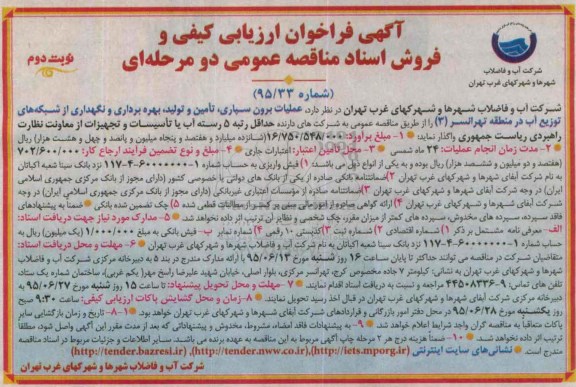 آگهی فراخوان ارزیابی کیفی و
فروش اسناد مناقصه عمومی دو مرحله‌ای
نوبت دوم
(شماره ۹۵/۳۳)
شرکت آب و فاضلاب
شهرها و شهرکهای غرب تهران
شرکت آب و فاضلاب شهرها و شهرکهای غرب تهران در نظر دارد، عملیات برون سپاری، تأمین و تولید، بهره برداری و نگهداری از شبکه‌های
توزیع آب در منطقه تهرانسر (۳) را از طریق مناقصه عمومی به شرکت های دارنده حداقل رتبه ۵ رسته آب یا تأسیسات و تجهیزات از معاونت نظارت
راهبردی ریاست جمهوری واگذار نماید: ۱- مبلغ برآورد: ۱۶/۷۵۰/۵۴۸/۰۰۰ (شانزده میلیارد و هفتصد و پنجاه میلیون و پانصد و چهل و هشت هزار) ریال
۲- مدت زمان انجام عملیات: ۲۴ ماه شمسی ۳- محل تأمین اعتبار: اعتبارات جاری ۴- مبلغ و نوع تضمین فرآیند ارجاع کار: ۷۰۲/۶۰۰/۰۰۰
(هفتصد و دو میلیون و ششصد هزار) ریال بوده و به یکی از انواع ذیل می باشد: ۱) فیش واریزی به حساب شماره ۱۱۷-۴-۶۰۰۰۰۰۰۰-۱ نزد بانک سینا شعبه اکباتان
به نام شرکت آبفای شهرها و شهرکهای غرب تهران ۲) ضمانتنامه بانکی صادره از یکی از بانک های دولتی یا خصوصی کشور (دارای مجوز از بانک مرکزی جمهوری اسلامی
ایران) در وجه شرکت آبفای شهرها و شهرکهای غرب تهران ۳) ضمانتنامه صادره از مؤسسات اعتباری غیربانکی (دارای مجوز از بانک مرکزی جمهوری اسلامی ایران) در وجه
شرکت آبفای شهرها و شهرکهای غرب تهران ۴) ارائه گواهی صادره از امور مالی مبنی بر کسر از مطالبات قطعی شده ۵) چک تضمین شده بانکی ضمناً به پیشنهادهای
فاقد سپرده، سپرده های مخدوش، سپرده های کمتر از میزان مقرر، چک شخصی و نظایر آن ترتیب اثر داده نخواهد شد. ۵- مدارک مورد نیاز جهت دریافت اسناد:
الف- معرفی نامه مشتمل بر ذکر ۱) شماره اقتصادی ۲) شماره ثبت ۳) کدپستی ۱۰ رقمی ۴) شماره نمابر ب- فیش بانکی به مبلغ ۱/۰۰۰/۰۰۰ (یک میلیون) ریال به
حساب شماره ۱۱۷-۴-۶۰۰۰۰۰۰۰-۱ نزد بانک سینا شعبه اکباتان به نام شرکت آب و فاضلاب شهرها و شهرکهای غرب تهران ۶- مهلت و محل دریافت اسناد:
متقاضیان شرکت در مناقصه می توانند حداکثر تا پایان ساعت ۱۶ روز شنبه مورخ ۹۵/۰۶/۱۳ با ارائه مدارک مندرج در بند ۵ به دبیرخانه مرکزی شرکت آب و فاضلاب
شهرها و شهرکهای غرب تهران به نشانی: کیلومتر ۷ جاده مخصوص کرج، تهرانسر مرکزی، بلوار اصلی، خیابان شهید علیرضا راسخ مهر (یکم غربی)، ساختمان شماره یک ستاد،
تلفن های تماس: ۹-۴۴۵۰۸۳۳۶ مراجعه و نسبت به دریافت اسناد اقدام نمایند. ۷- مهلت و محل تحویل پیشنهاد: تا ساعت ۱۵ روز شنبه مورخ ۹۵/۰۶/۲۷ به
دبیرخانه مرکزی شرکت آبفای شهرها و شهرکهای غرب تهران در قبال اخذ رسید تحویل نمایند. ۸- زمان و محل گشایش پاکات ارزیابی کیفی: ساعت ۹:۳۰ صبح
روز یکشنبه مورخ ۹۵/۰۶/۲۸ در محل دفتر امور بازرگانی و قراردادهای شرکت آبفای شهرها و شهرکهای غرب تهران خواهد بود ۸-۱- تاریخ و زمان بازگشایی سایر
پاکات متعاقباً به مناقصه گران واجد شرایط اعلام خواهد شد. ۹- به پیشنهادات فاقد امضاء، مشروط، مخدوش و پیشنهاداتی که بعد از مدت مقرر این آگهی واصل شود، مطلقاً
ترتیب اثر داده نخواهد شد. ۱۰- ضمناً هزینه درج هر ۲ مرحله چاپ آگهی مربوط به این مناقصه به عهده برنده می باشد. سایر اطلاعات و جزئیات مربوط در اسناد مناقصه
مندرج است. نشانی‌های سایت اینترنتی (http://iets.mporg.ir)، (http://tender.nww.co.ir)، (http://tender.bazresi.ir)
شرکت آب و فاضلاب شهرها و شهرکهای غرب تهران